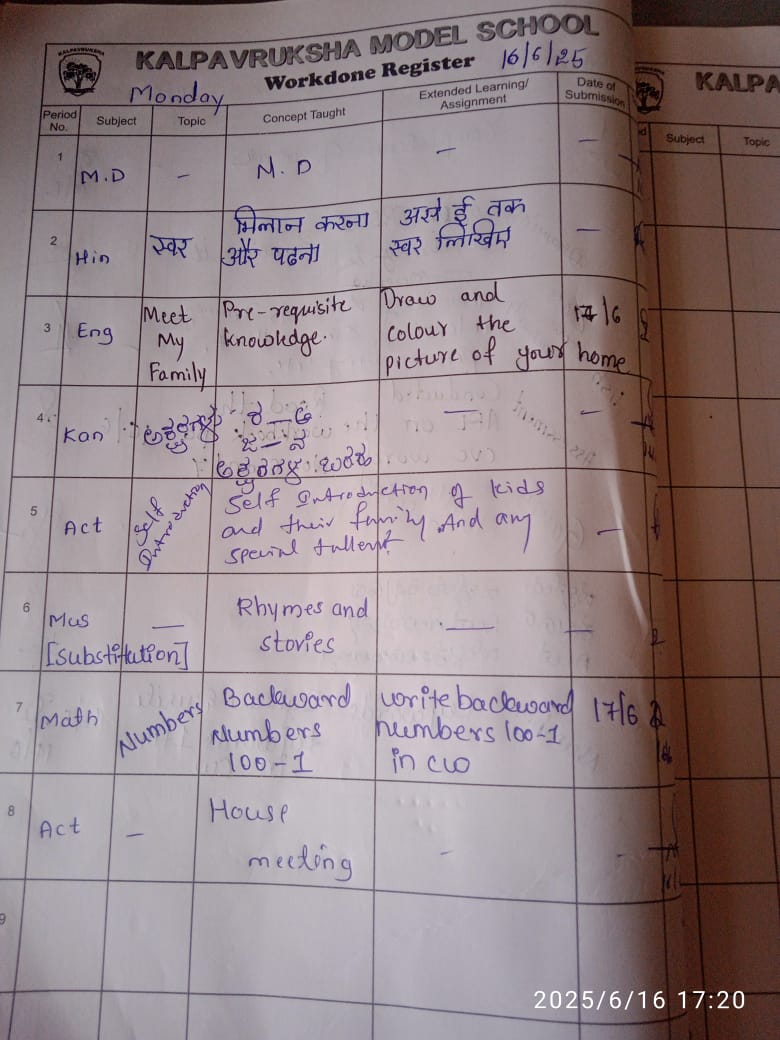 KALPAVRUKSHA MODEL SCHOOL
Workdone Register 16/6/25
Monday
Period No. Subject Topic Concept Taught Extended Learning/ Assignment Date of Submission
1 M.D – M.D – –
2 Hin स्वर मिलान करना और पढना अ से ई तक स्वर लिखिए –
3 Eng Meet My Family Pre-requisite knowledge. Draw and colour the picture of your home 17/6
4. Kan
5 Act Self Introduction Self Introduction of kids and their family. And any special –
6 Mus [Substitution] — Rhymes and stories — —
7 Math Numbers Backward Numbers 100-1 write backward numbers 100-1 in cw 17/6
8 Act – House meeting – –
9
KALPA
Subject Topic
2025/6/16 17:20